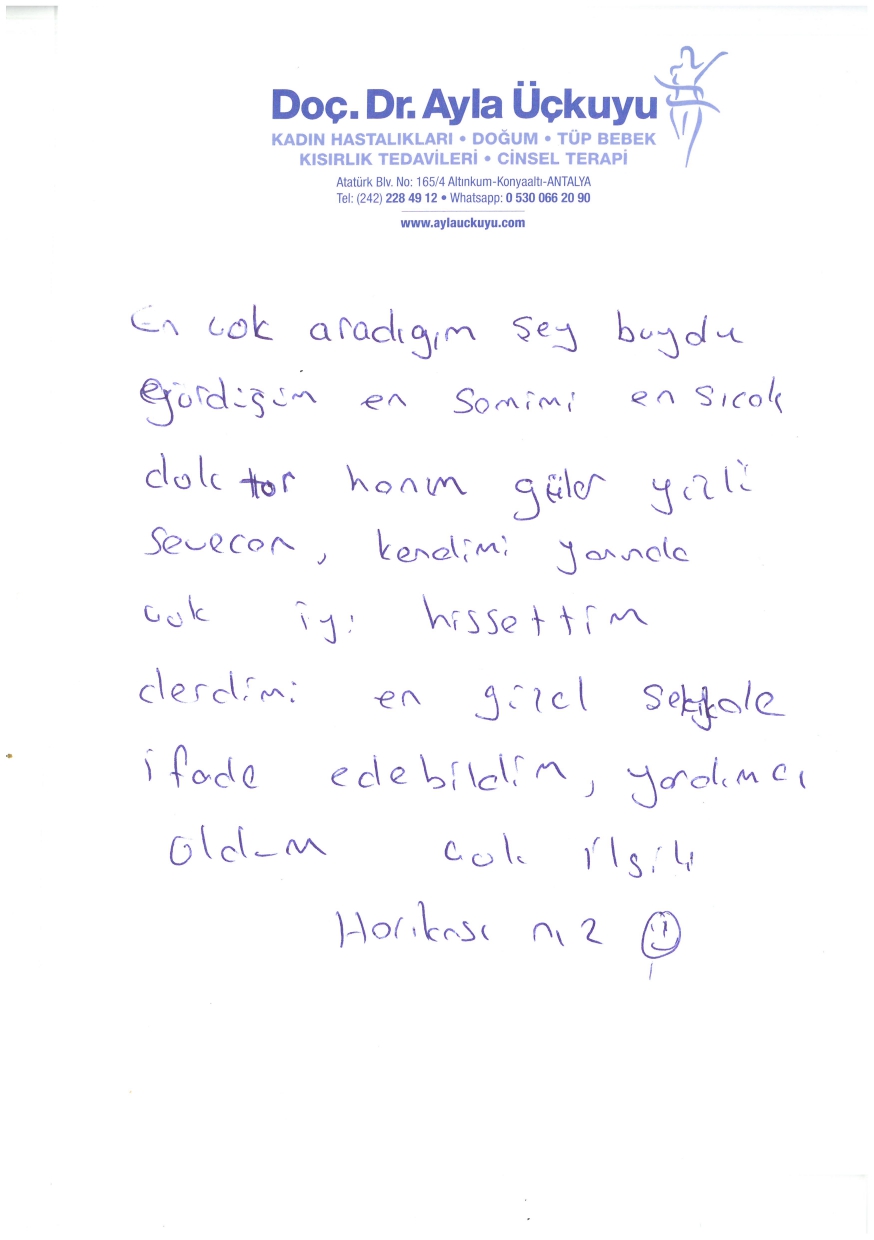 Doç. Dr. Ayla Üçkuyu
KADIN HASTALIKLARI • DOĞUM • TÜP BEBEK
KISIRLIK TEDAVİLERİ • CİNSEL TERAPİ
Atatürk Blv. No: 165/4 Altınkum-Konyaaltı-ANTALYA
Tel: (242) 228 49 12 • Whatsapp: 0 530 066 20 90
www.aylauckuyu.com
En cok aradıgım şey buydu
gördüğüm en samimi en sıcak
doktor hanım güler yüzlü
sevecan, kendimi yanında
cok iyi hissettim
derdimi en güzel sekilde
ifade edebildim, yardımcı
oldum cok ilgili
Harikası nız